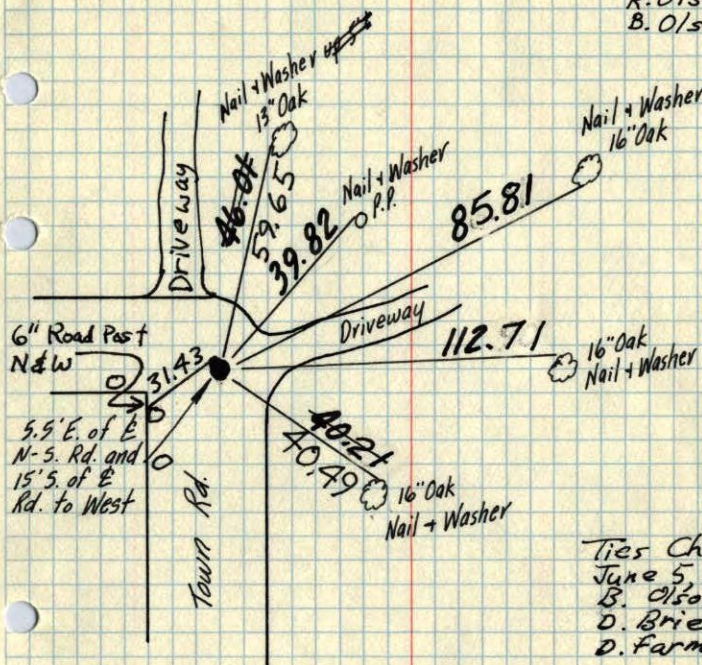 R. Ols
B. Ols
Nail + Washer
13" Oak
Nail + Washer
P.P.
Nail + Washer
16" Oak
Driveway
46.01
59.65
39.82
85.81
Driveway
112.71
16" Oak
Nail + Washer
6" Road Post
N & W
31.43
5.5' E. of ℄
N-S. Rd. and
15' S. of ℄
Rd. to West
40.21
40.49
16" Oak
Nail + Washer
Town Rd.
Ties Ch
June 5,
B. Olso
D. Brie
D. Farm